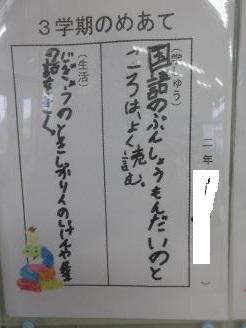 3学期のめあて
二年
(学しゅう)
国語のぶんしょうもんだいのと
ころは、よく読む。
(生活)
じぎょうのときしかりんのいけんや先
の話をきく。